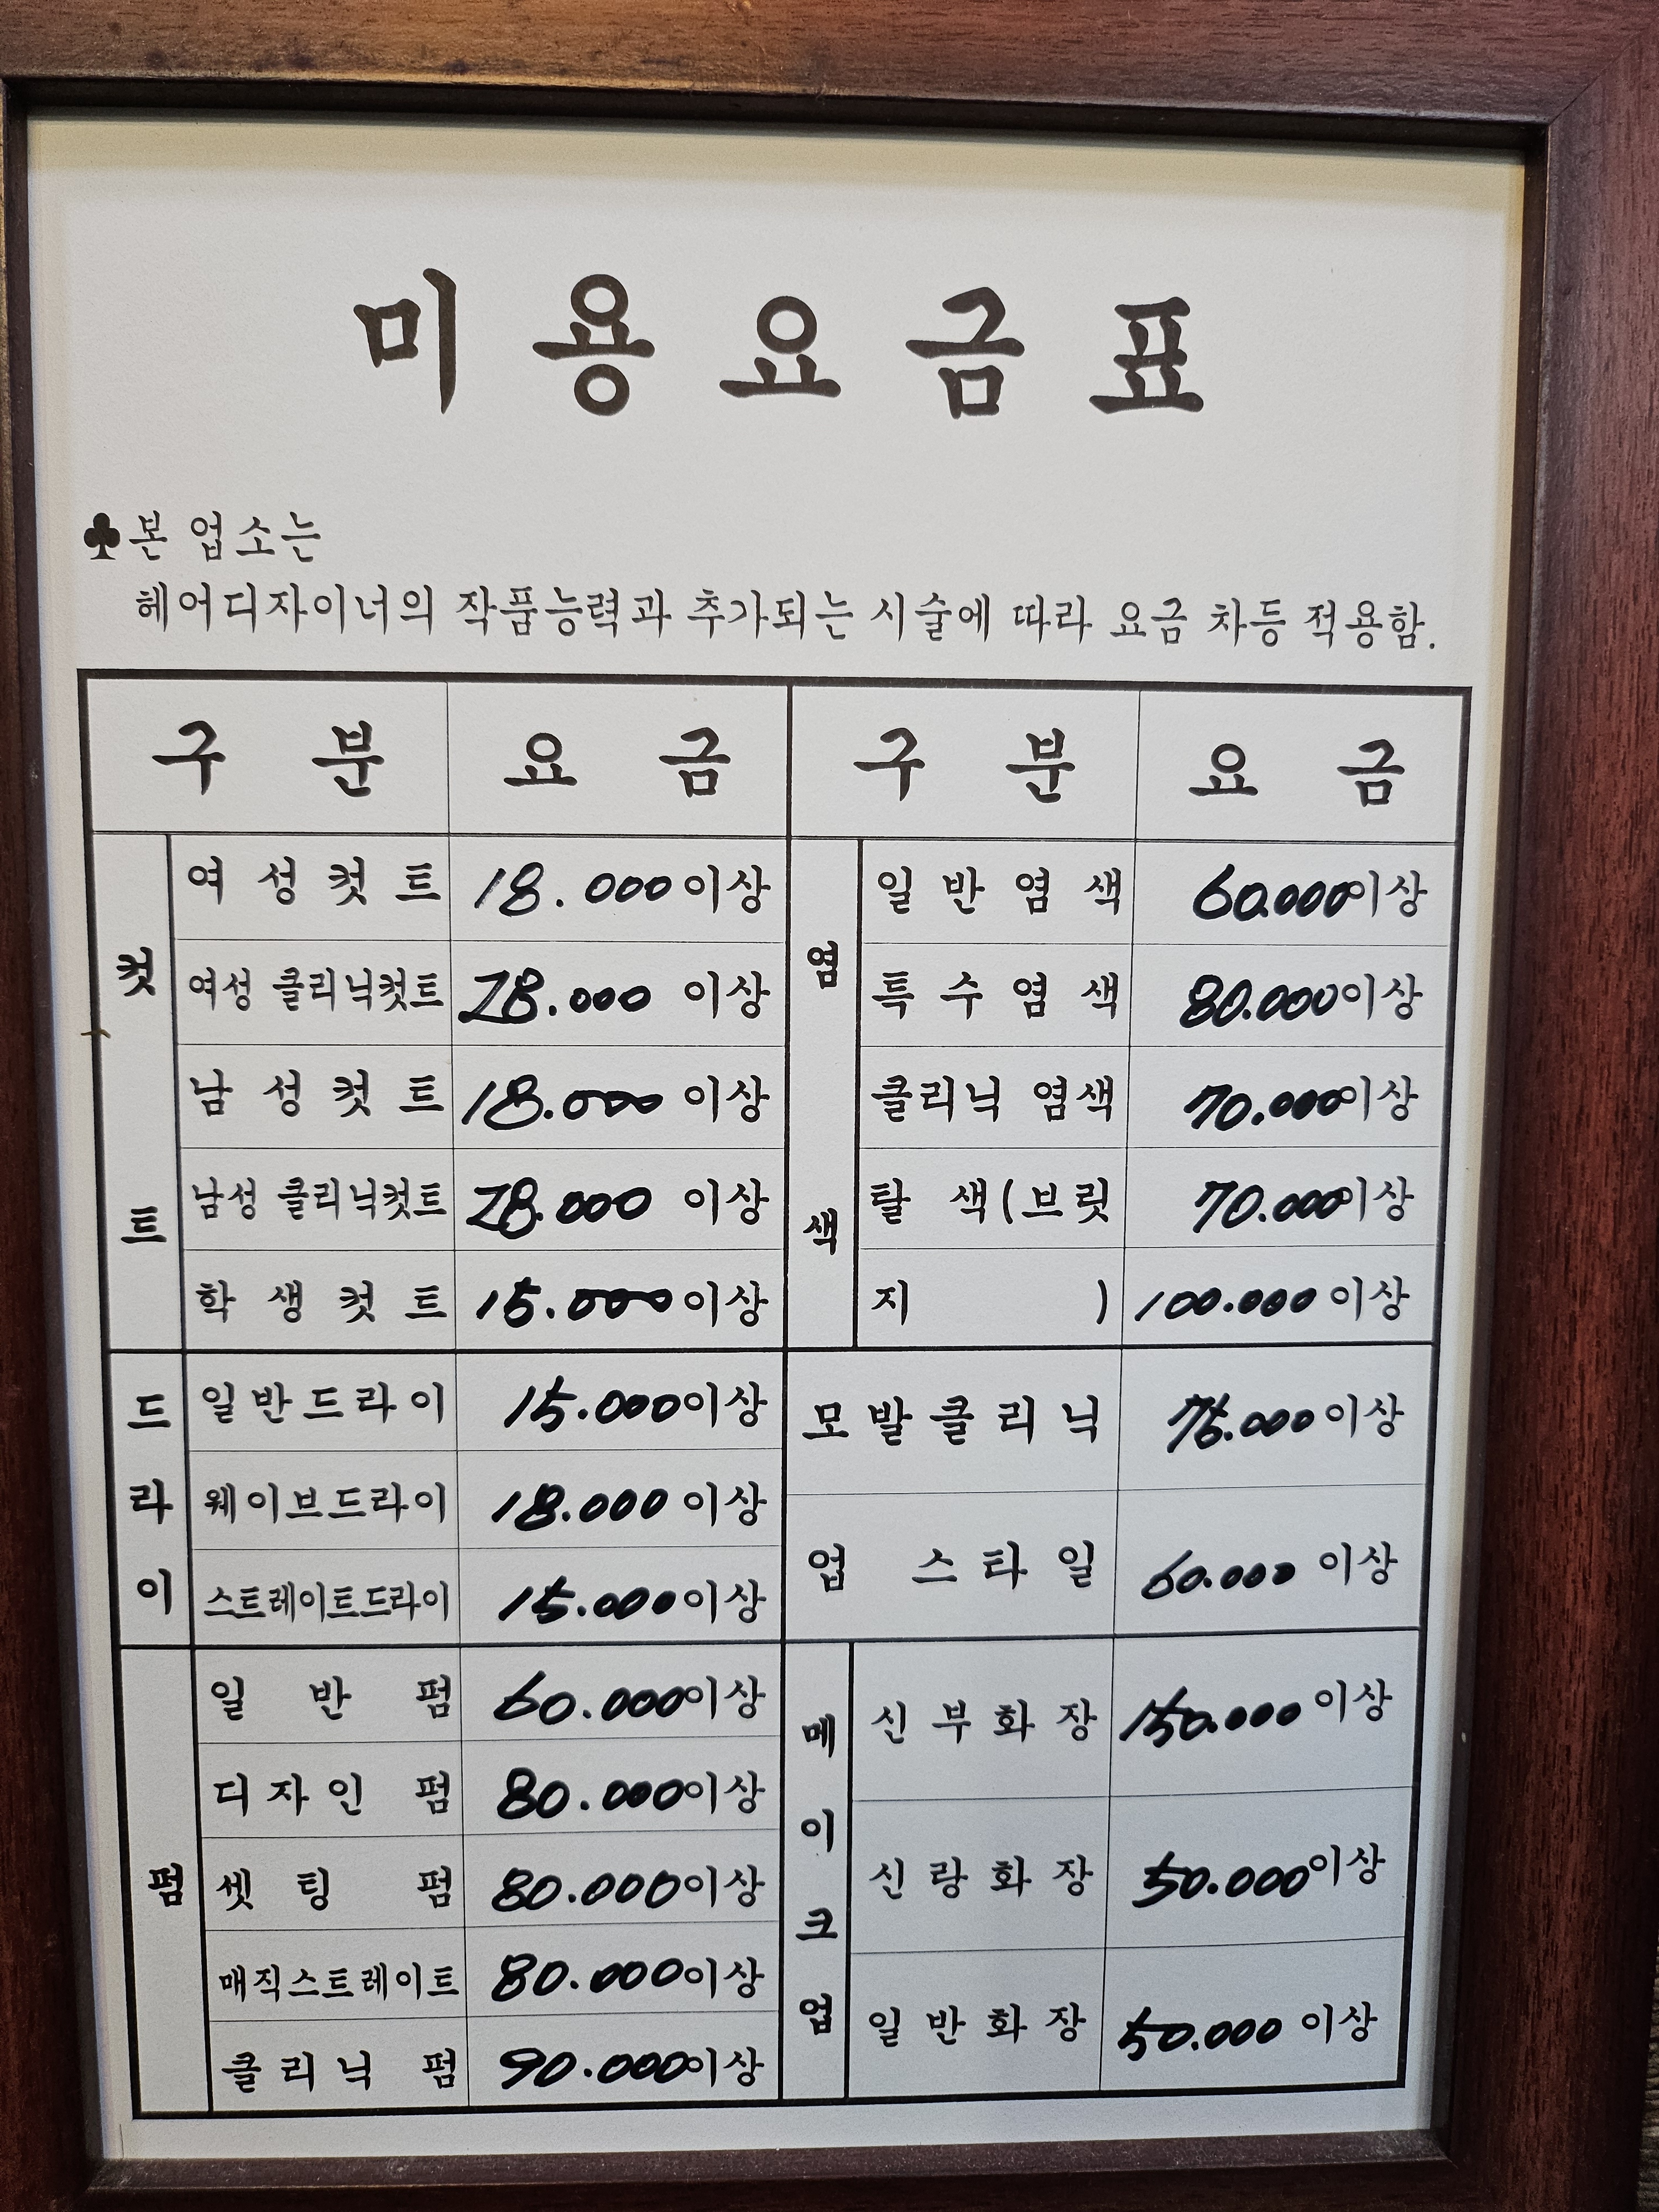 미용요금표
♣본 업소는
헤어디자이너의 작품능력과 추가되는 시술에 따라 요금 차등 적용함.
구분 요금 구분 요금
컷트
여성컷트 18.000이상
여성 클리닉컷트 28.000 이상
남성컷트 18.000 이상
남성 클리닉컷트 28.000 이상
학생컷트 15.000이상
드라이
일반드라이 15.000이상
웨이브드라이 18.000이상
스트레이트드라이 15.000이상
펌
일반펌 60.000이상
디자인 펌 80.000이상
셋팅 펌 80.000이상
매직스트레이트 80.000이상
클리닉 펌 90.000이상
염색
일반염색 60.000이상
특수염색 80.000이상
클리닉 염색 70.000이상
탈색(브릿 70.000이상
지) 100.000이상
모발클리닉 75.000이상
업스타일 60.000 이상
메이크업
신부화장 150.000이상
신랑화장 50.000이상
일반화장 50.000 이상